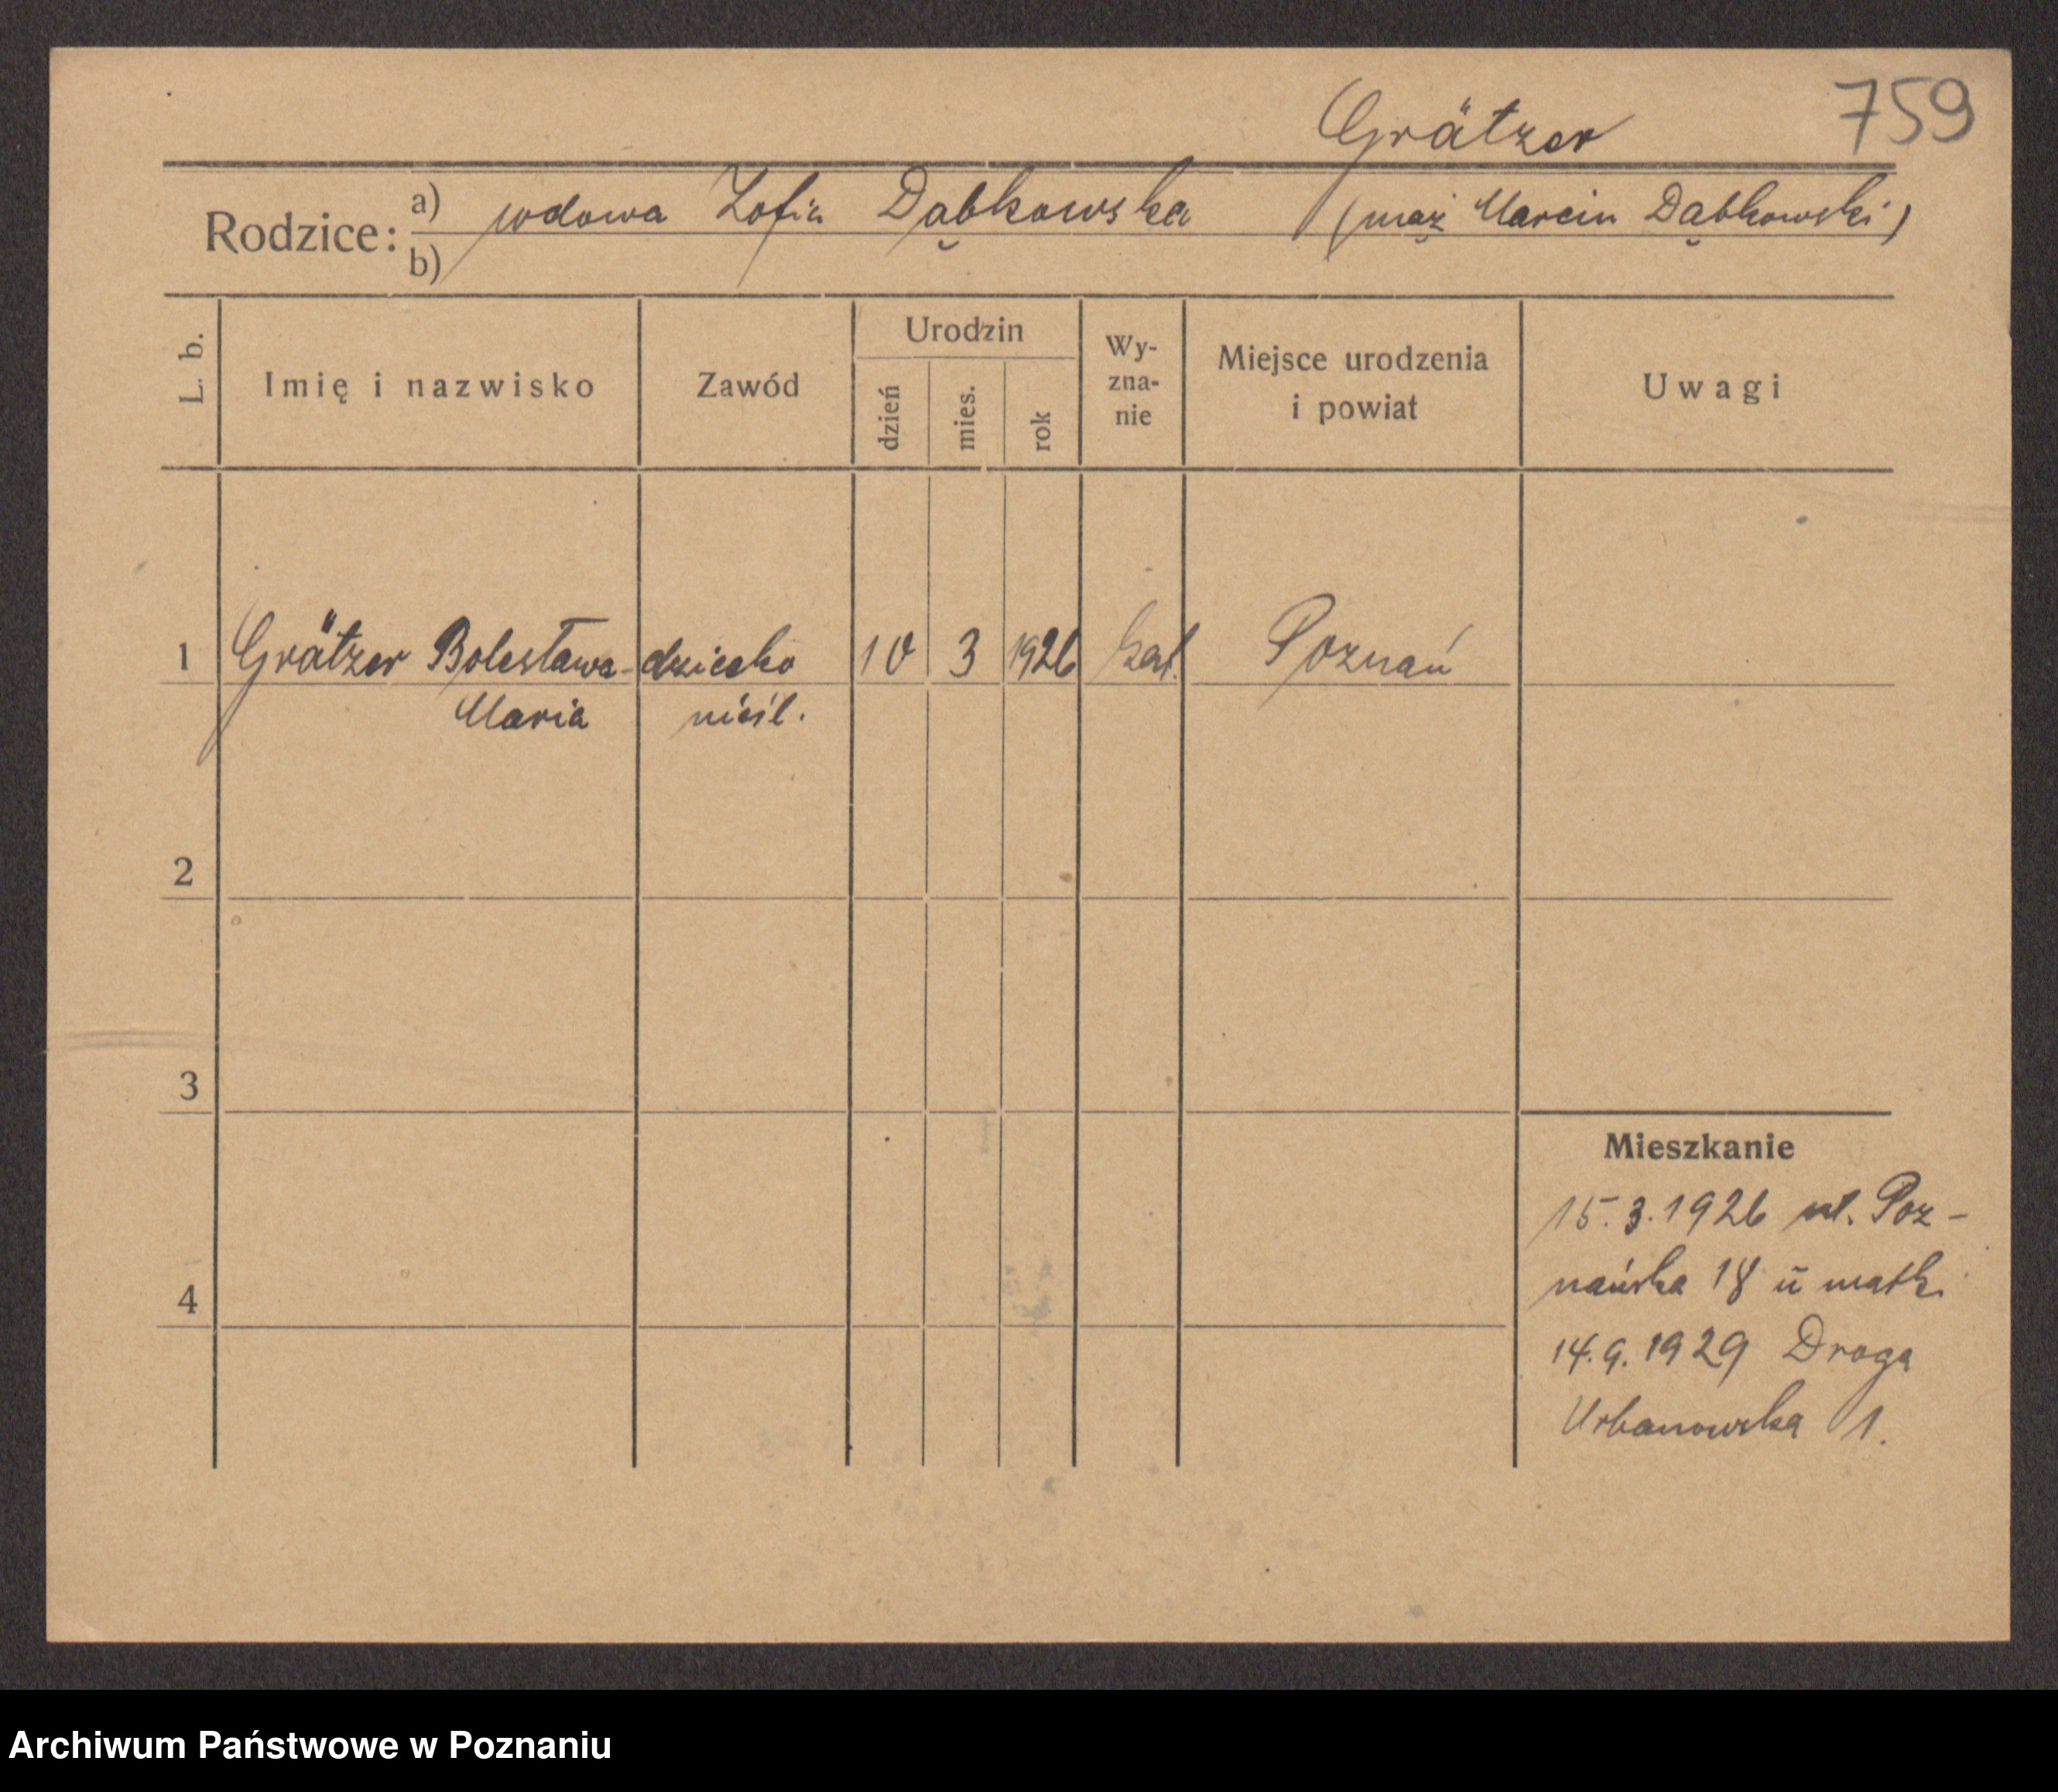 759
Grätzer
Rodzice: a) wdowa Zofia Dąbkowska (mąż Marcin Dąbkowski)
b)
L. b.
Imię i nazwisko
Zawód
Urodzin
dzień
mies.
rok
Wy-
zna-
nie
Miejsce urodzenia
i powiat
Uwagi
1 Grätzer Bolesława- dziecko 10 3 1926 kat. Poznań
Maria nieśl.
2
3
4
Mieszkanie
15.3.1926 ul. Poz-
nańska 18 u matki
14.9.1929 Droga
Urbanowska 1.
Archiwum Państwowe w Poznaniu